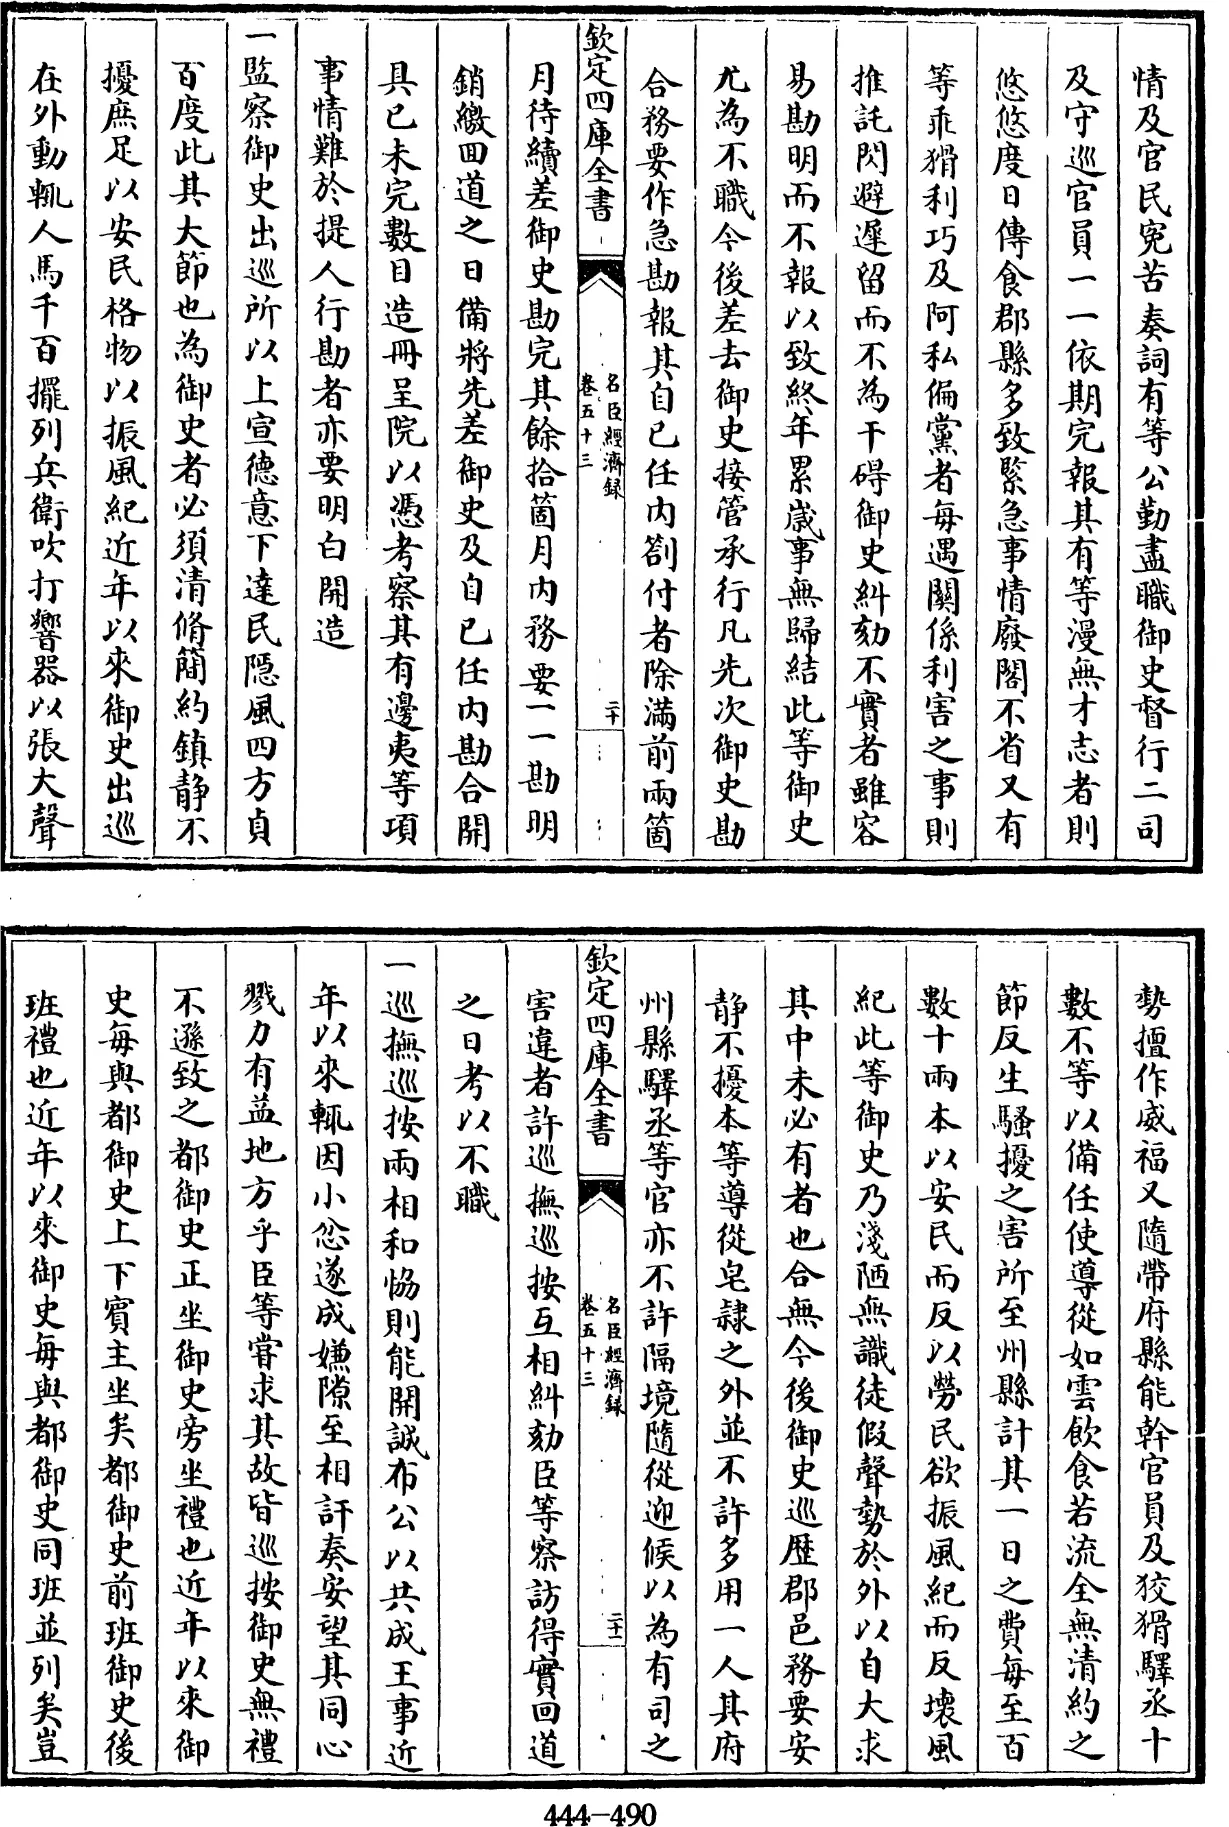 情及官民寃苦奏詞有等公勤盡職御史督行二司
及守巡官員一一依期完報其有等漫無才志者則
悠悠度日傳食郡縣多致緊急事情廢閣不省又有
等乖猾利巧及阿私偏黨者每遇關係利害之事則
推託閃避遲留而不為干碍御史糾劾不實者雖容
易勘明而不報以致終年累歲事無歸結此等御史
尤為不職今後差去御史接管承行凡先次御史勘
合務要作急勘報其自己任内劄付者除滿前兩箇
欽定四庫全書
名臣經濟録
卷五十三
二十
月待續差御史勘完其餘拾箇月内務要一一勘明
銷繳回道之日備將先差御史及自己任内勘合開
具已未完數目造冊呈院以憑考察其有邊夷等項
事情難於提人行勘者亦要明白開造
一監察御史出巡所以上宣德意下達民隠風四方貞
百度此其大節也為御史者必須清脩簡約鎮静不
擾庶足以安民格物以振風紀近年以來御史出巡
在外動輒人馬千百擺列兵衛吹打響器以張大聲
勢擅作威福又隨帶府縣能幹官員及狡猾驛丞十
數不等以備任使導從如雲飲食若流全無清約之
節反生騷擾之害所至州縣計其一日之費每至百
數十兩本以安民而反以勞民欲振風紀而反壞風
紀此等御史乃淺陋無識徒假聲勢於外以自大求
其中未必有者也合無今後御史巡歷郡邑務要安
静不擾本等導從皂隷之外並不許多用一人其府
州縣驛丞等官亦不許隔境隨從迎候以為有司之
欽定四庫全書
名臣經濟録
卷五十三
二十一
害違者許巡撫巡按互相糾劾臣等察訪得實回道
之日考以不職
一巡撫巡按兩相和恊則能開誠布公以共成王事近
年以來輒因小忿遂成嫌隙至相訐奏安望其同心
戮力有益地方乎臣等嘗求其故皆巡按御史無禮
不遜致之都御史正坐御史旁坐禮也近年以來御
史每與都御史上下賓主坐矣都御史前班御史後
班禮也近年以來御史每與都御史同班並列矣豈
444-490